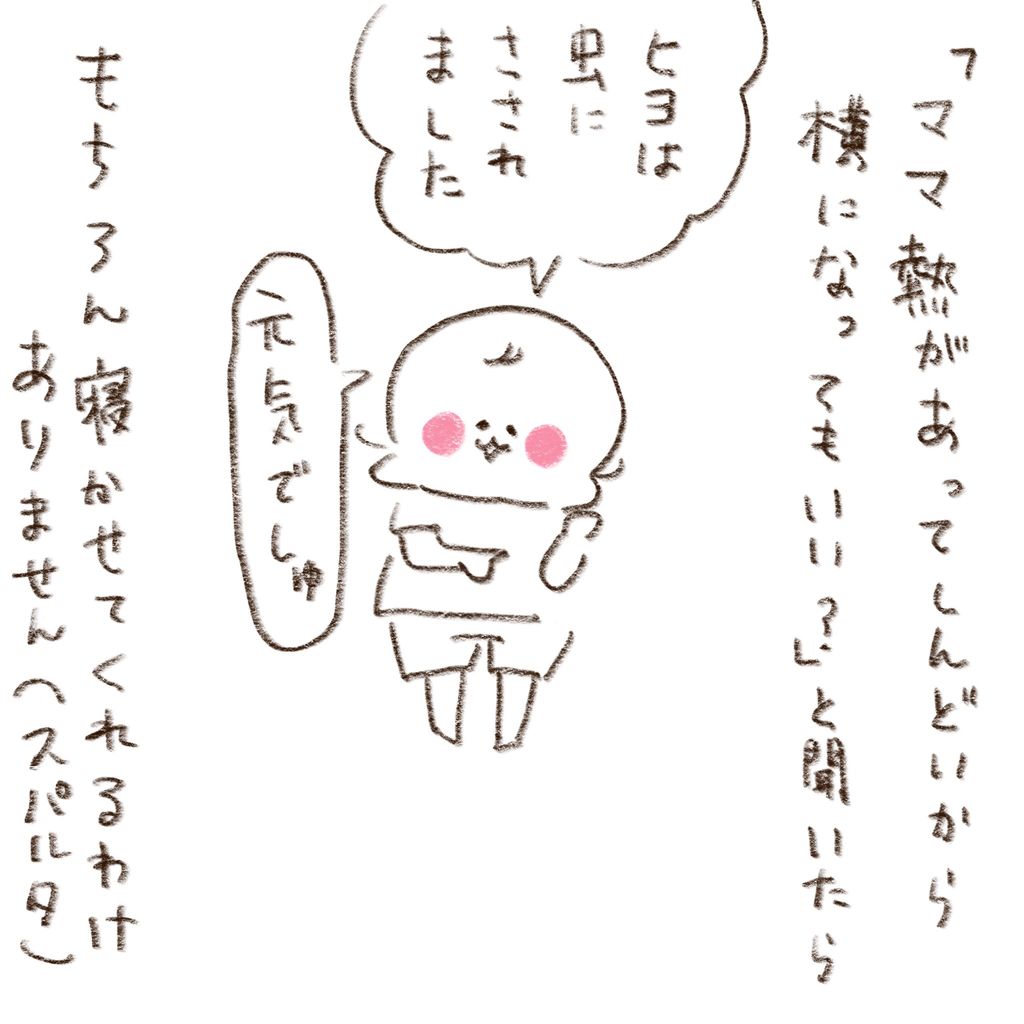 「ママ熱があってしんどいから
横になってもいい?」と聞いたら
ヒヨは
虫に
さされ
ました
元気でしゅ
もちろん寝かせてくれるわけ
ありません(スパルタ)